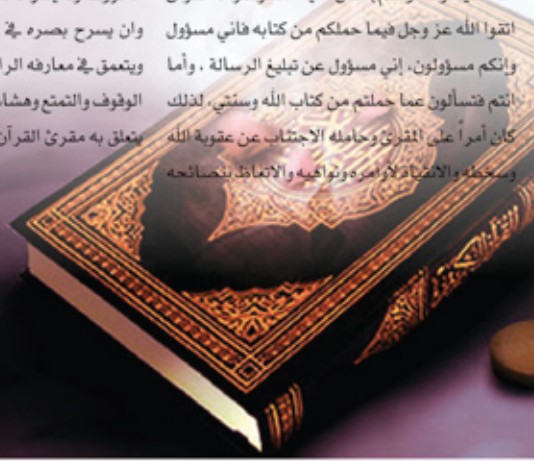 اتقوا الله عز وجل فيما حملكم من كتابه فاني مسؤول
وإنكم مسؤولون، إني مسؤول عن تبليغ الرسالة ، وأما
انتم فتسألون عما حملتم من كتاب الله وسنتي، لذلك
كان أمراً على المقرئ وحامله الاجتناب عن عقوبة الله
وسخطه والانقياد لأوامره ونواهيه والاتعاظ بنصائحه
وان يسرح بصره في
ويتعمق في معارفه
الوقوف والتمتع
يتعلق به مقرئ القرآن